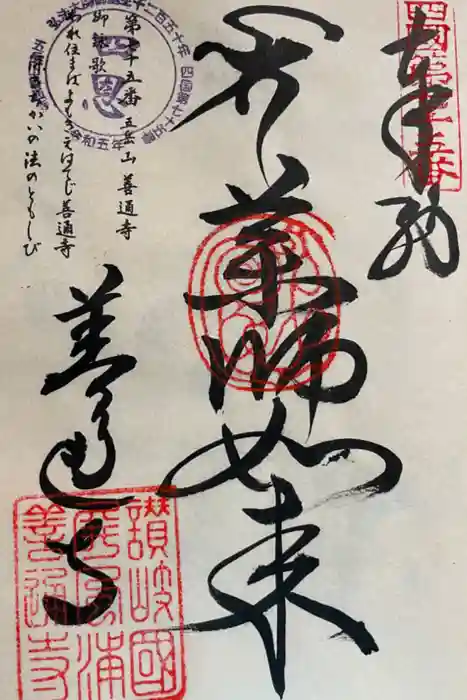 奉納
薬師如来
善通寺
讃岐國
屏風浦
善通寺
弘法大師御誕生千二百五十年 四国第七十五番
四恩
令和五年
第七十五番 五岳山 善通寺
御詠歌
われ住まばよもきえはてじ善通寺
ふかきちかいの法のともしび